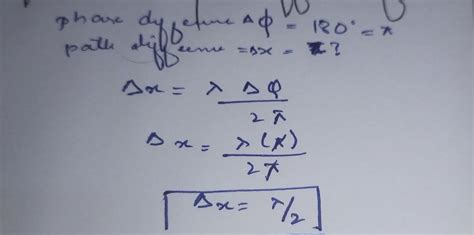 phase difference Δϕ = 180° = π
path difference = Δx = ?
Δx = λ Δϕ / 2π
Δx = λ(π) / 2π
Δx = λ/2